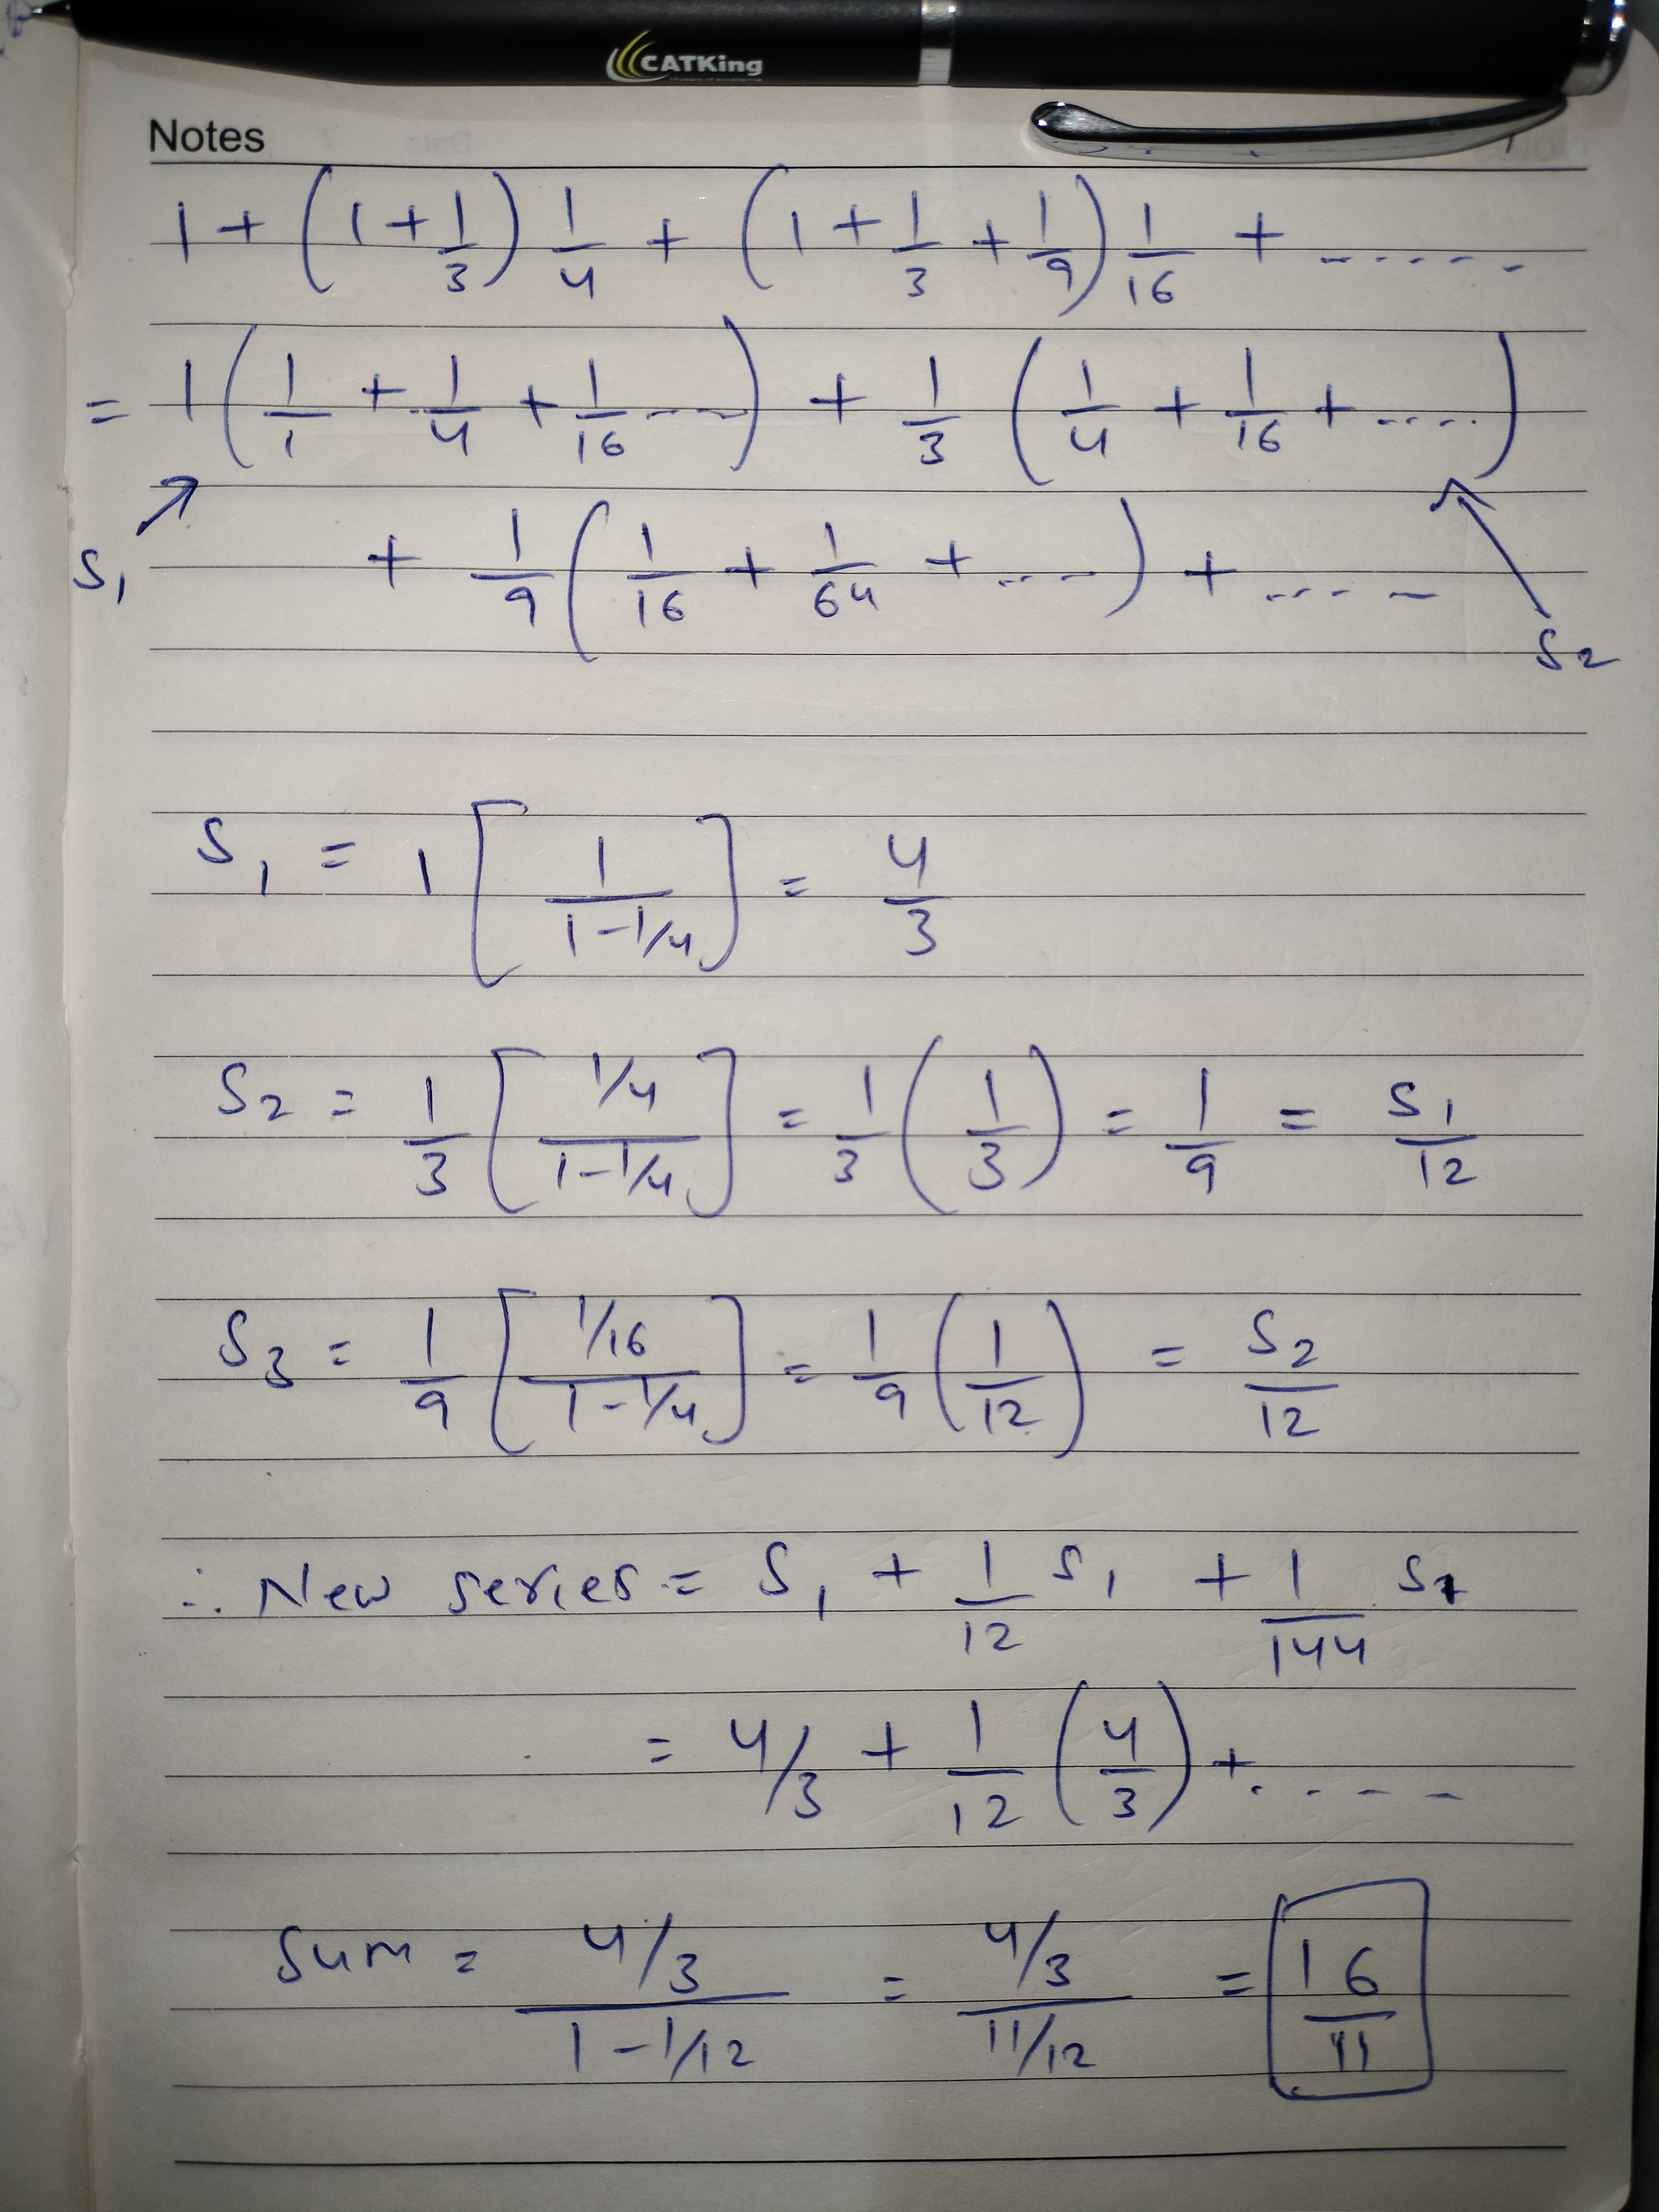 CATKing
Notes
1 + (1 + 1/3) 1/4 + (1 + 1/3 + 1/9) 1/16 + ......
= 1 (1/1 + 1/4 + 1/16 ----) + 1/3 (1/4 + 1/16 + .....)
S₁
+ 1/9 (1/16 + 1/64 + ....) + .....
S₂
S₁ = 1 [1/(1-1/4)] = 4/3
S₂ = 1/3 [(1/4)/(1-1/4)] = 1/3 (1/3) = 1/9 = S₁/12
S₃ = 1/9 [(1/16)/(1-1/4)] = 1/9 (1/12) = S₂/12
∴ New series = S₁ + 1/12 S₁ + 1/144 S₁
= 4/3 + 1/12 (4/3) + .....
Sum = (4/3)/(1-1/12) = (4/3)/(11/12) = 16/11